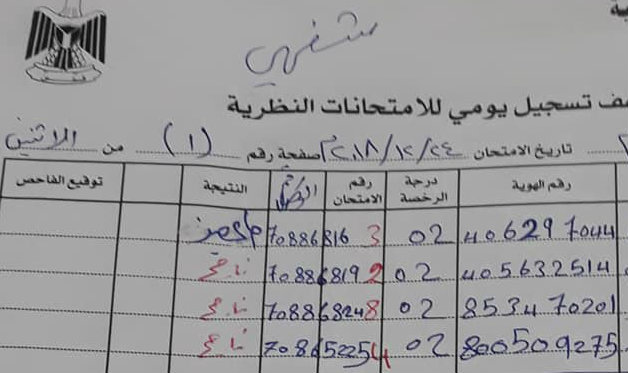 شفهي
كشف تسجيل يومي للامتحانات النظرية
تاريخ الامتحان ٢٠١٨/١٢/٢٤ صفحة رقم (١) من الاثنين
رقم الهوية درجة الرخصة رقم الامتحان النتيجة توقيع الفاحص
406297044 02 3 70886816
405632514 02 2 70886819 ناجح
853470201 02 8 70886824 ناجح
800509275 02 4 70865225 ناجح